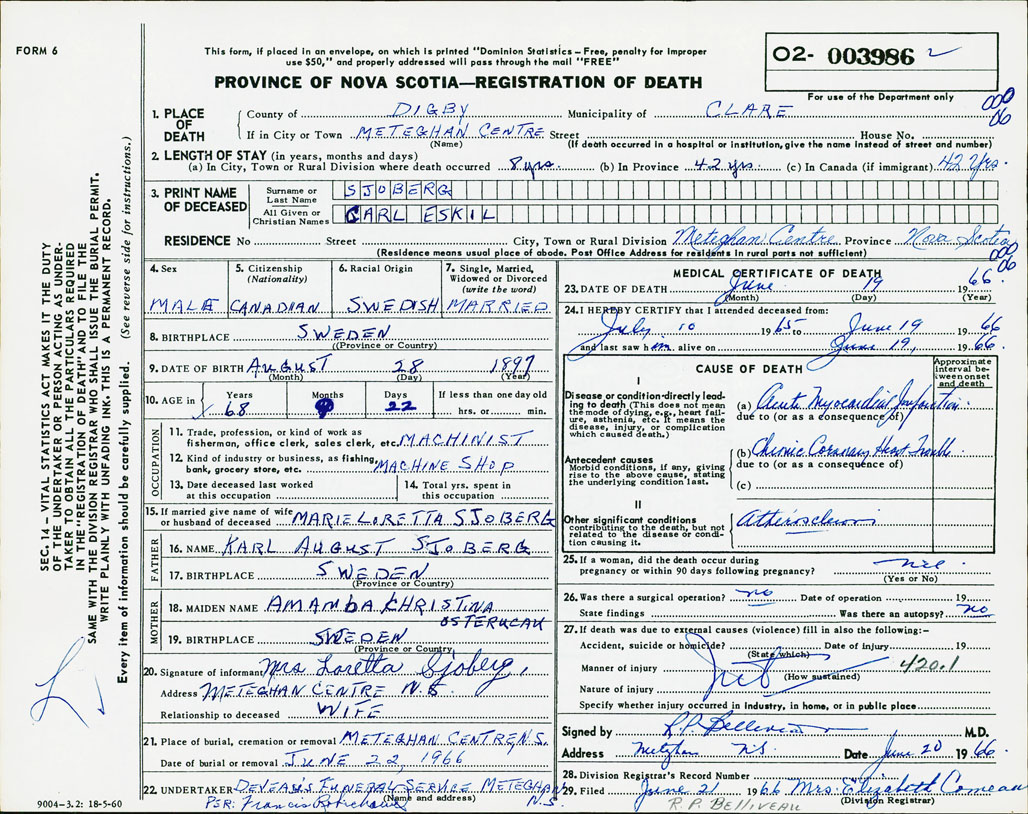 FORM 6
This form, if placed in an envelope, on which is printed "Dominion Statistics – Free, penalty for improper
use $50," and properly addressed will pass through the mail "FREE"
PROVINCE OF NOVA SCOTIA—REGISTRATION OF DEATH
02- 003986
For use of the Department only
000
06
1. PLACE OF DEATH
County of DIGBY Municipality of CLARE
If in City or Town METEGHAN CENTRE Street House No.
(Name) (If death occurred in a hospital or institution, give the name instead of street and number)
2. LENGTH OF STAY (in years, months and days)
(a) In City, Town or Rural Division where death occurred 8 yrs. (b) In Province 42 yrs. (c) In Canada (if immigrant) 42 yrs.
3. PRINT NAME OF DECEASED
Surname or Last Name SJOBERG
All Given or Christian Names CARL ESKIL
RESIDENCE No Street City, Town or Rural Division Meteghan Centre Province Nova Scotia
(Residence means usual place of abode. Post Office Address for residents in rural parts not sufficient)
000
06
4. Sex MALE
5. Citizenship (Nationality) CANADIAN
6. Racial Origin SWEDISH
7. Single, Married, Widowed or Divorced (write the word) MARRIED
8. BIRTHPLACE SWEDEN
(Province or Country)
9. DATE OF BIRTH AUGUST 28 1897
(Month) (Day) (Year)
10. AGE in Years 68 Months 9 Days 22 If less than one day old hrs. or min.
OCCUPATION
11. Trade, profession, or kind of work as
fisherman, office clerk, sales clerk, etc. MACHINIST
12. Kind of industry or business, as fishing,
bank, grocery store, etc. MACHINE SHOP
13. Date deceased last worked
at this occupation
14. Total yrs. spent in
this occupation
15. If married give name of wife
or husband of deceased MARIE LORETTA SJOBERG
FATHER
16. NAME KARL AUGUST SJOBERG
17. BIRTHPLACE SWEDEN
(Province or Country)
MOTHER
18. MAIDEN NAME AMAMBA KHRISTINA
19. BIRTHPLACE SWEDEN
(Province or Country)
20. Signature of informant Mrs Loretta Sjoberg.
Address METEGHAN CENTRE N.S.
Relationship to deceased WIFE
21. Place of burial, cremation or removal METEGHAN CENTRE N.S.
Date of burial or removal JUNE 22, 1966
22. UNDERTAKER DEVEAU'S FUNERAL SERVICE METEGHAN
(Name and address) N.S.
PER: Francis
9004-3.2: 18-5-60
MEDICAL CERTIFICATE OF DEATH
23. DATE OF DEATH June 19 1966
(Month) (Day) (Year)
24. I HEREBY CERTIFY that I attended deceased from:
July 10 1965 to June 19 1966
and last saw him alive on June 19, 1966.
CAUSE OF DEATH
Approximate interval between onset and death
I
Disease or condition directly leading to death (This does not mean the mode of dying, e.g., heart failure, asthenia, etc. It means the disease, injury, or complication which caused death.)
(a) Acute Myocardial Infarction
due to (or as a consequence of)
Antecedent causes
Morbid conditions, if any, giving rise to the above cause, stating the underlying condition last.
(b) Chronic Coronary Heart Trouble
due to (or as a consequence of)
(c)
II
Other significant conditions
contributing to the death, but not related to the disease or condition causing it.
Atherosclerosis
25. If a woman, did the death occur during
pregnancy or within 90 days following pregnancy?
(Yes or No)
26. Was there a surgical operation? no Date of operation 19
State findings Was there an autopsy? no
27. If death was due to external causes (violence) fill in also the following:–
Accident, suicide or homicide? Date of injury 19
(State which)
Manner of injury 420.1
(How sustained)
Nature of injury
Specify whether injury occurred in industry, in home, or in public place
Signed by R.P. Belliveau M.D.
Address Meteghan N.S. Date June 20 1966.
28. Division Registrar's Record Number
29. Filed June 21 1966 Mrs. Elizabeth Comeau
(Division Registrar)
R.P. BELLIVEAU
SEC. 14 – VITAL STATISTICS ACT MAKES IT THE DUTY
OF THE UNDERTAKER OR PERSON ACTING AS UNDER-
TAKER TO OBTAIN ALL THE PARTICULARS REQUIRED
IN THE "REGISTRATION OF DEATH" AND TO FILE THE
SAME WITH THE DIVISION REGISTRAR WHO SHALL ISSUE THE BURIAL PERMIT.
WRITE PLAINLY WITH UNFADING INK. THIS IS A PERMANENT RECORD.
Every item of information should be carefully supplied. (See reverse side for instructions.)